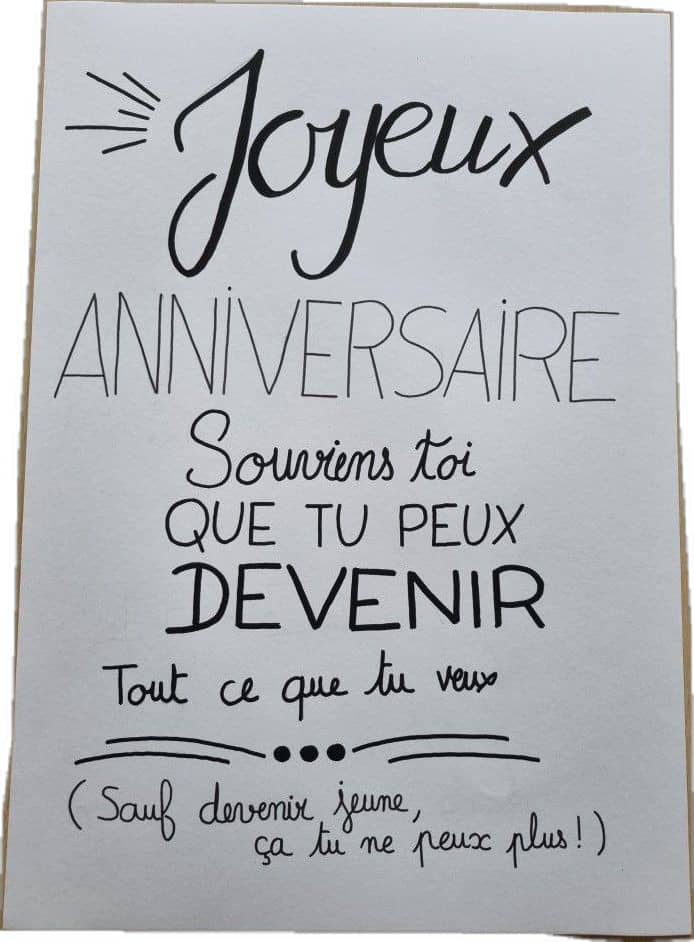 Joyeux
ANNiVERSAiRE
Souviens toi
QUE TU PEUX
DEVENIR
Tout ce que tu veux
(Sauf devenir jeune,
ça tu ne peux plus!)